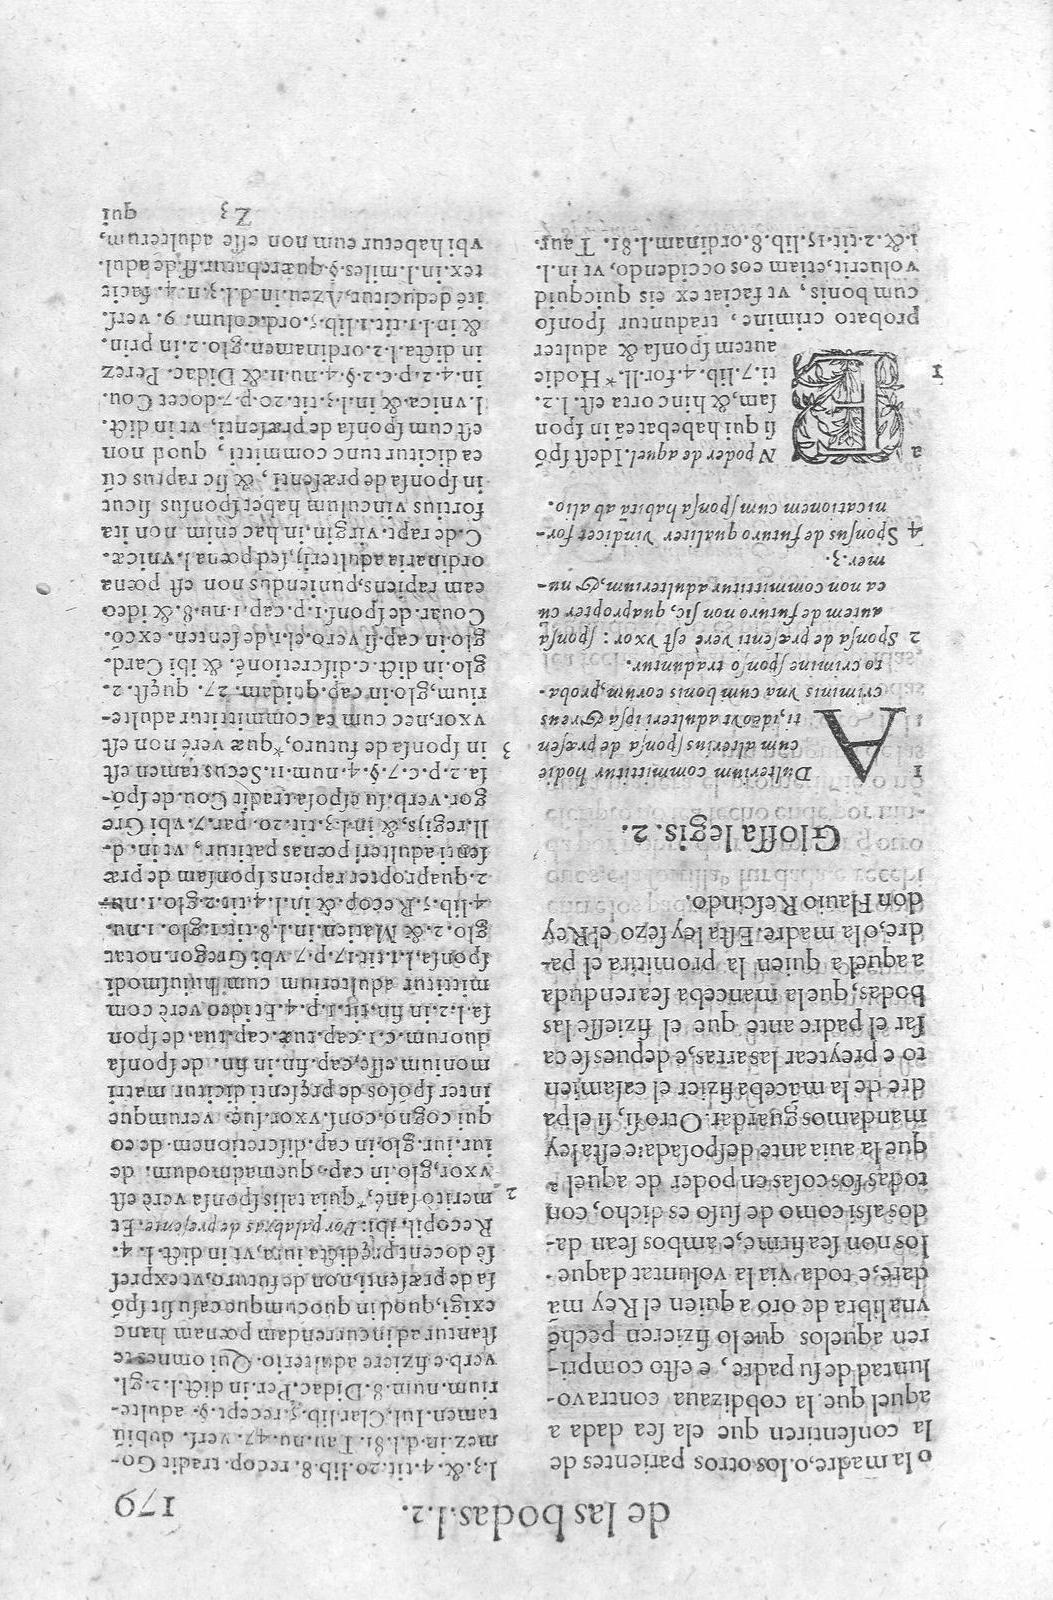 de las bodas.l.2. 179
o la madre, o. los otros parientes de
la consentiren que ela sea dada a
aquel que. la cobdizaua contravo-
luntad de su padre, e esto compri-
ren aquelos quelo fizieren pechē
vna libra de oro a quien el Rey mā
dare, e toda via la voluntat daque-
los non sea firme, e ambos sean da-
dos asi como de suso es dicho, con
todas sos cosas en poder de aquel a
que la auia ante desposada: e esta ley
mandamos guardar. Otrosi, si el pa
dre de la māceba fizier el casamien
to e preytear las arras, e depues se ca
sar el padre ante que el fiziesse las
bodas, quela manceba sea renduda
a aquel a quien la promitira el pa-
dre, o la madre. Esta ley fezo el Rey
don Flauio Rescindo.
Glossa legis. 2.
1 ADulterium committitur hodie
cum alterius sponsa de præsen
ti, ideò vt adulteri ipsa & reus
criminis vna cum bonis eorum, proba-
to crimine sponso traduntur.
2 Sponsa de præsenti verè est vxor: sponsa
autem de futuro non sic, quapropter cū
ea non committitur adulterium, & nu-
mer. 3.
4 Sponsus de futuro qualiter vindicet for-
nicationem cum sponsa habita ab alio.
a EN poder de aquel. Id est spō
si qui habebat cā in spon
sam, & hinc orta est l. 2.
ti. 7. lib. 4. for. ll. * Hodie
1 autem sponsa & adulter
probato crimine, traduntur sponso
cum bonis, vt faciat ex eis quicquid
voluerit, etiam eos occidendo, vt in l.
1. & 2. tit. 15. lib. 8. ordinam. l. 81. Taur.
l. 3. & . 4. tit. 20. lib. 8. recop. tradit Go-
mez. in d. l. 81. Tau. nu. 47. vers. dubiū
tamen. Iul. Clar. lib. 5. recept. §. adulte-
rium. num. 8. Didac. Per. in dict. l. 2. gl.
verb. e fiziere adulterio. Qui omnes te
stantur ad incurrendam pœnam hanc
exigi, quod in quocumque casu sit spō
sa de præsenti, non de futuro, vt expres
sē docent prędicta iura, vt in dict. l. 4.
Recopil. ibi: Por palabras de presente. Et
2 merito sanè, * quia talis sponsa verè est
vxor, glo. in cap. quemadmodum. de
iur. iur. glo. in cap. discretionem. de eo
qui cogno. cons. vxor. suę. verumque
inter spōsos de pręsenti dicitur matri
monium esse, cap. fin. in fin. de sponsa
duorum. c. 1. cap. tuæ. cap. tua. de spon
sa. l. 2. in fin. tit. 1. p. 4. Et ideo verè com
mittitur adulterium cum huiusmodi
sponsa, l. 1. tit. 17. p. 7. vbi Gregor. notat
glo. 2. & Matien. in l. 8. tit. 1. glo. 1. nu.
4. lib. 5. Recop. & in l. 4. tit. 2. glo. 1. nu.
2. quapropter rapiens sponsam de præ
senti adulteri pœnas patitur, vt in. d.
ll. regijs, & in l. 3. tit. 20. par. 7. vbi Gre
gor. verb. su esposa. tradit Cou. de spō-
sa. 2. p. c. 7. §. 4. num. 11. Secus tamen est
3 in sponsa de futuro, * quæ verè non est
vxor, nec cum ea committitur adulte-
rium, glo. in cap. quidam. 27. quęst. 2.
glo. in dict. c. discretionē. & ibi Card.
glo. in cap. si vero. el. 1. de senten. excō.
Couar. de spons. 1. p. cap. 1. nu. 8. & ideo
eam rapiens, puniendus non est pœna
ordinaria adulterij, sed pœna l. vnicæ.
C. de rapt. virgin. in hac enim non ita
fortius vinculum habet sponsus sicut
in sponsa de præsenti, & sic raptus cū
ea dicitur tunc committi, quod non
est cum sponsa de præsenti, vt in dict.
l. vnica. & in l. 3. tit. 20. p. 7. docet Cou.
in. 4. 2. p. c. 2. §. 4. nu. 11. & Didac. Perez
in dicta. l. 2. ordinamen. glo. 2. in prin.
& in l. 1. tit. 1. lib. 5. ord. colum. 9. vers.
itē deducitur, Azeu. in. d. l. 3. n. 4. facit
tex. in. l. miles. §. quærebatur. ff. de adul.
vbi habetur eum non esse adulterum,
Z 3 qui